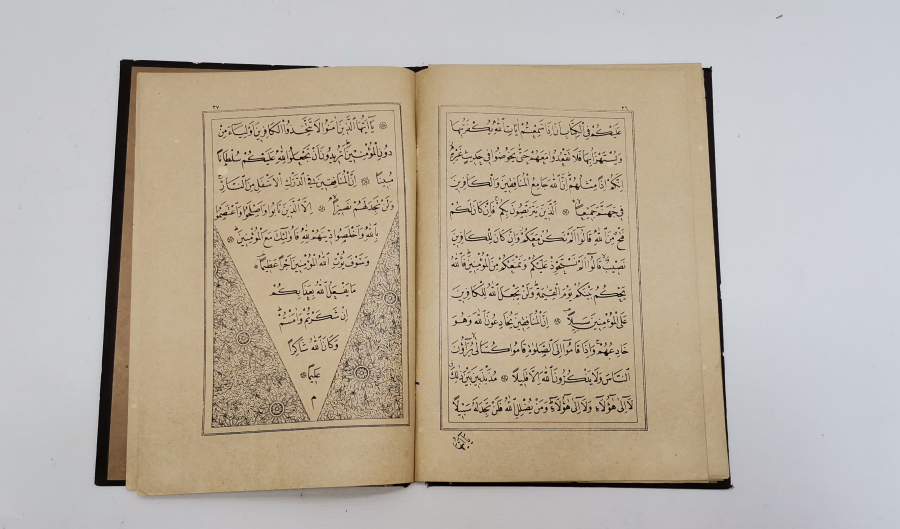 ٢٦
عَلَيْكُمْ فِي الْكِتَابِ أَنْ إِذَا سَمِعْتُمْ آيَاتِ اللهِ يُكْفَرُ بِهَا
وَيُسْتَهْزَأُ بِهَا فَلَا تَقْعُدُوا مَعَهُمْ حَتَّى يَخُوضُوا فِي حَدِيثٍ غَيْرِهِ
إِنَّكُمْ إِذًا مِثْلُهُمْ إِنَّ اللهَ جَامِعُ الْمُنَافِقِينَ وَالْكَافِرِينَ
فِي جَهَنَّمَ جَمِيعًا الَّذِينَ يَتَرَبَّصُونَ بِكُمْ فَإِنْ كَانَ لَكُمْ
فَتْحٌ مِنَ اللهِ قَالُوا أَلَمْ نَكُنْ مَعَكُمْ وَإِنْ كَانَ لِلْكَافِرِينَ
نَصِيبٌ قَالُوا أَلَمْ نَسْتَحْوِذْ عَلَيْكُمْ وَنَمْنَعْكُمْ مِنَ الْمُؤْمِنِينَ فَاللهُ
يَحْكُمُ بَيْنَكُمْ يَوْمَ الْقِيٰمَةِ وَلَنْ يَجْعَلَ اللهُ لِلْكَافِرِينَ
عَلَى الْمُؤْمِنِينَ سَبِيلًا إِنَّ الْمُنَافِقِينَ يُخَادِعُونَ اللهَ وَهُوَ
خَادِعُهُمْ وَإِذَا قَامُوا إِلَى الصَّلٰوةِ قَامُوا كُسَالَى يُرَاؤُنَ
النَّاسَ وَلَا يَذْكُرُونَ اللهَ إِلَّا قَلِيلًا مُذَبْذَبِينَ بَيْنَ ذٰلِكَ
لَا إِلَى هٰؤُلَاءِ وَلَا إِلَى هٰؤُلَاءِ وَمَنْ يُضْلِلِ اللهُ فَلَنْ تَجِدَ لَهُ سَبِيلًا
٢٧
يَا أَيُّهَا الَّذِينَ آمَنُوا لَا تَتَّخِذُوا الْكَافِرِينَ أَوْلِيَاءَ مِنْ
دُونِ الْمُؤْمِنِينَ أَتُرِيدُونَ أَنْ تَجْعَلُوا لِلهِ عَلَيْكُمْ سُلْطَانًا
مُبِينًا إِنَّ الْمُنَافِقِينَ فِي الدَّرْكِ الْأَسْفَلِ مِنَ النَّارِ
وَلَنْ تَجِدَ لَهُمْ نَصِيرًا إِلَّا الَّذِينَ تَابُوا وَأَصْلَحُوا وَاعْتَصَمُوا
بِاللهِ وَأَخْلَصُوا دِينَهُمْ لِلهِ فَأُولٰئِكَ مَعَ الْمُؤْمِنِينَ
وَسَوْفَ يُؤْتِ اللهُ الْمُؤْمِنِينَ أَجْرًا عَظِيمًا
مَا يَفْعَلُ اللهُ بِعَذَابِكُمْ
إِنْ شَكَرْتُمْ وَآمَنْتُمْ
وَكَانَ اللهُ شَاكِرًا
عَلِيمًا
م